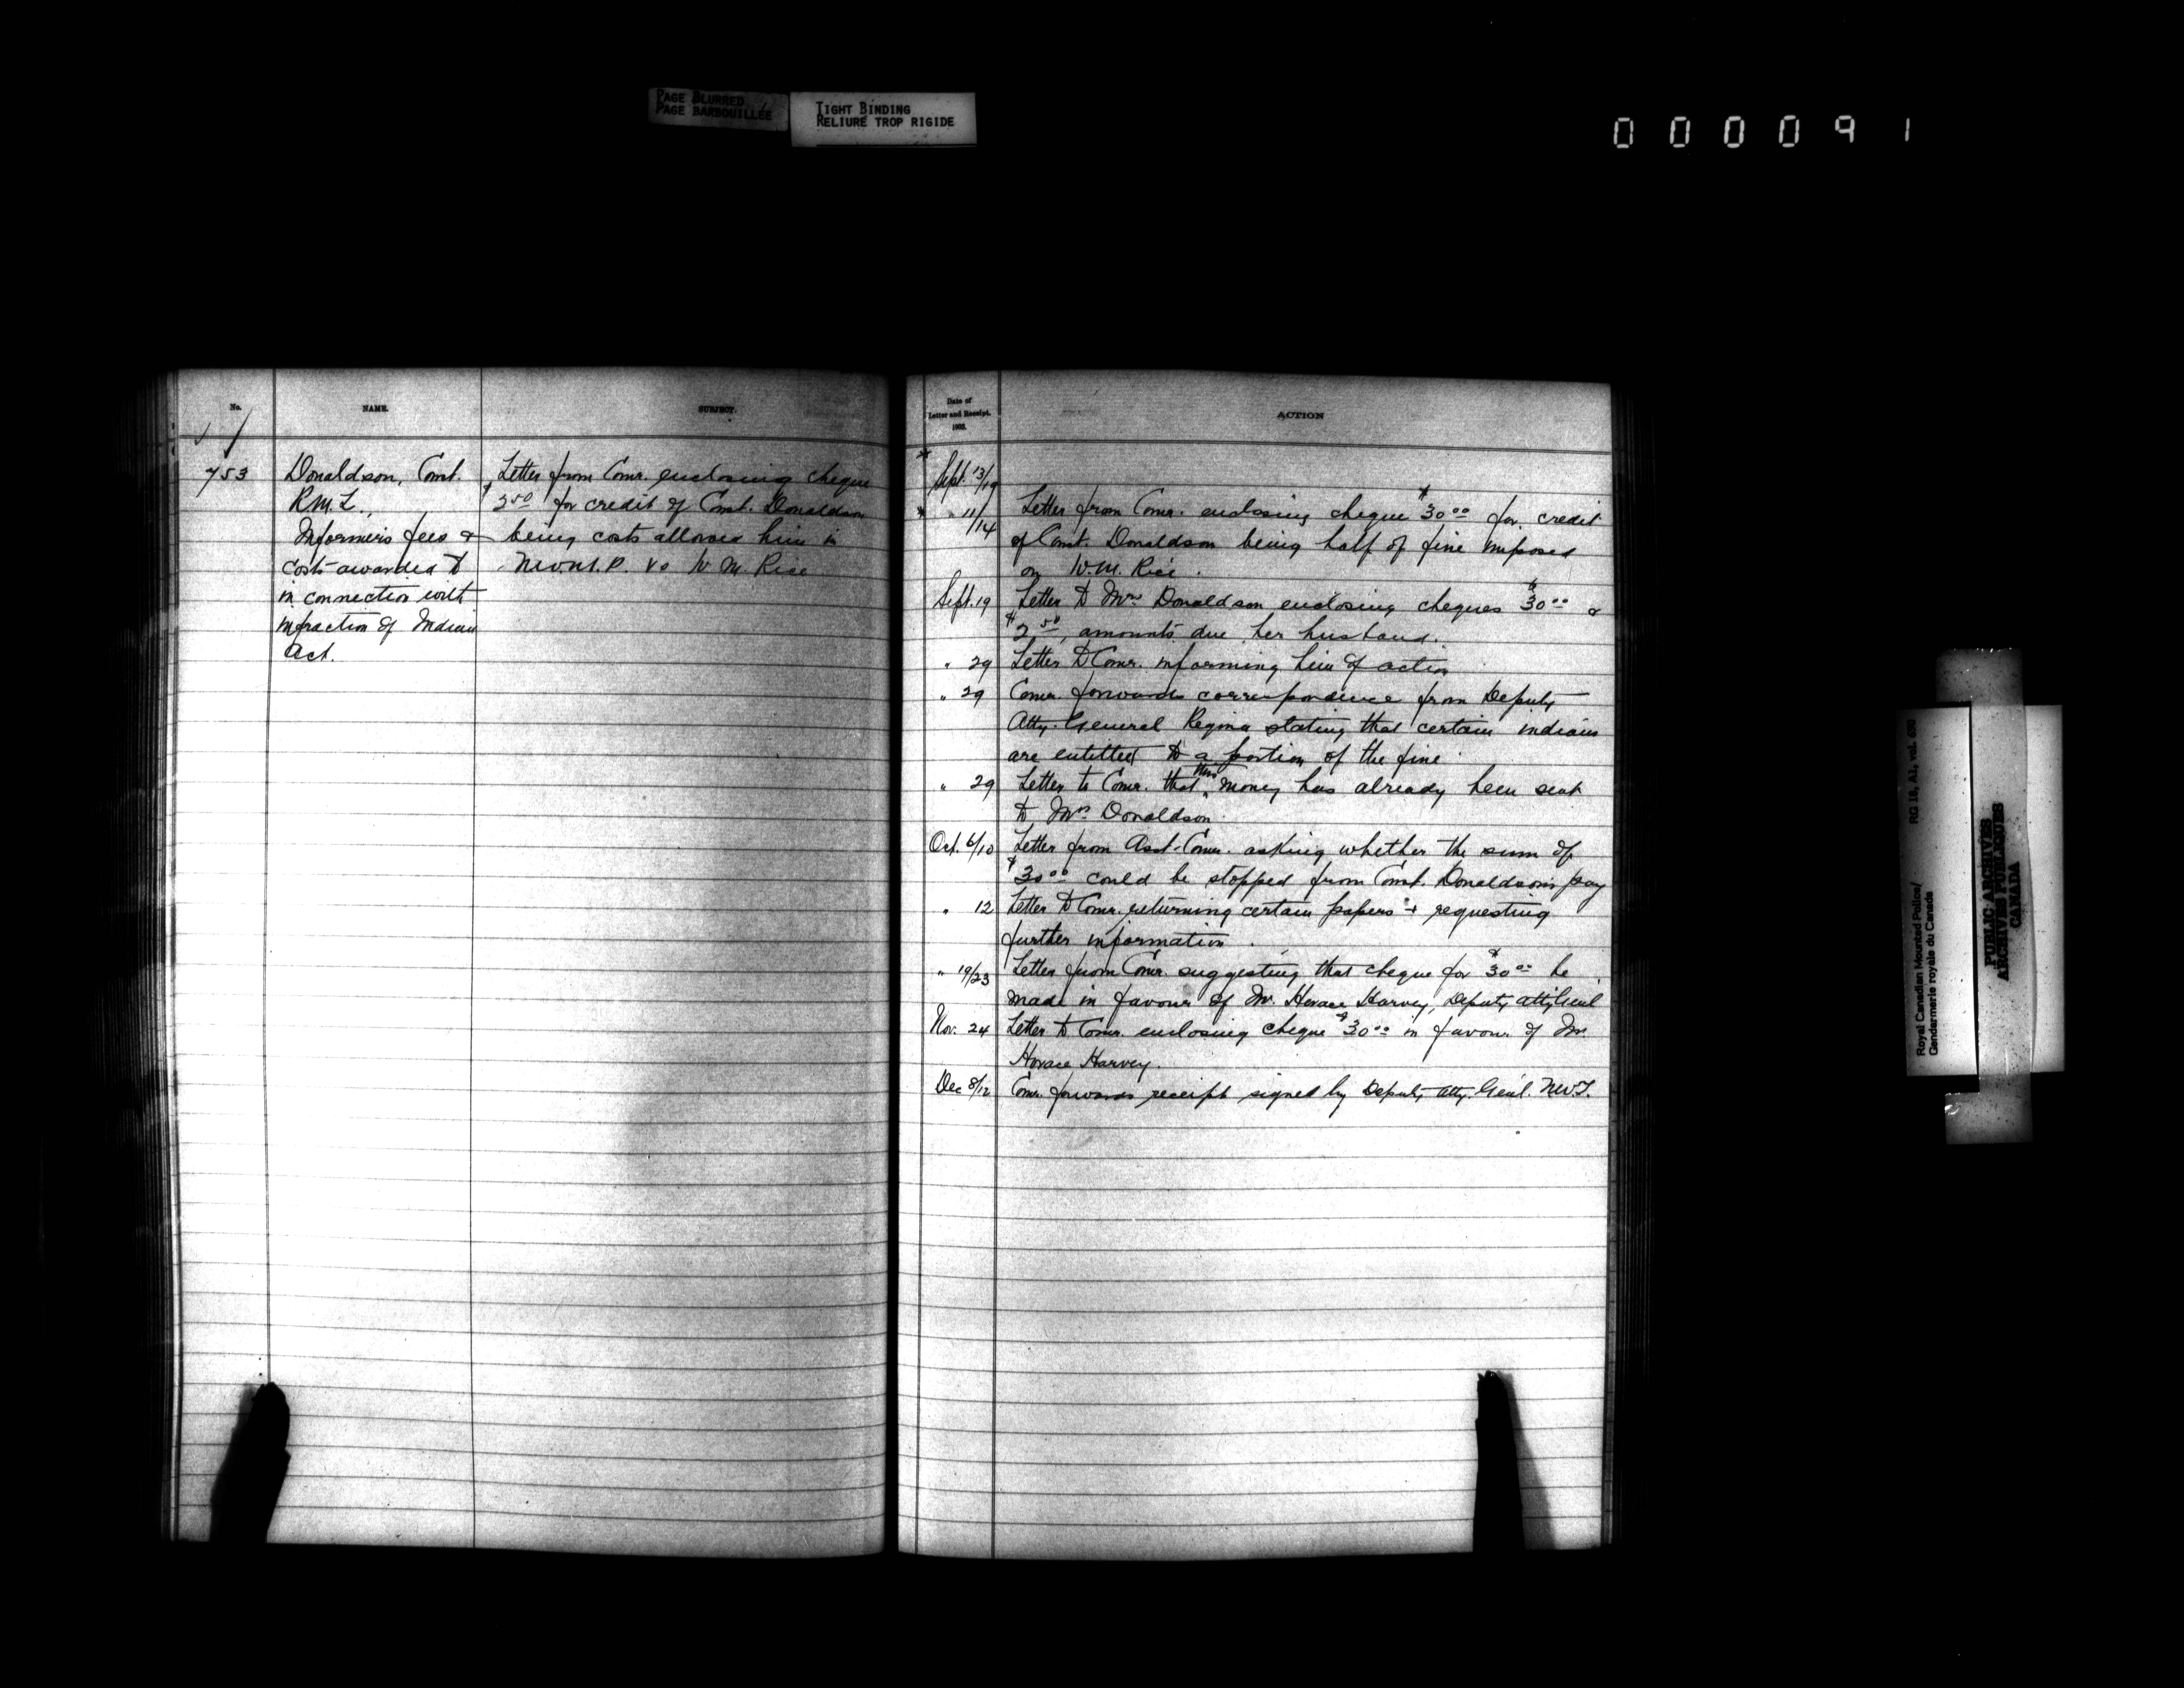 PAGE BLURRED
PAGE BARBOUILLÉE
TIGHT BINDING
RELIURE TROP RIGIDE
000091
No.
NAME.
SUBJECT.
753
Donaldson, Const.
R.M.L.,
Informer's fees &
costs awarded to
in connection with
infraction of Indian
Act.
Letter from Comr. enclosing cheque
$2.50 for credit of Const. Donaldson
being costs allowed him in
N.W.M.P. vs W. M. Rice
Date of
Letter and Receipt.
ACTION
Sept. 13/19
" 11/14 Letter from Comr. enclosing cheque $30.00 for credit
of Const. Donaldson being half of fine imposed
on W.M. Rice.
Sept. 19 Letter to Mrs Donaldson enclosing cheques $30.00 &
$2.50, amounts due her husband.
" 29 Letter to Comr. informing him of action
" 29 Comr. forwards correspondence from Deputy
Atty. General Regina stating that certain indians
are entitled to a portion of the fine
" 29 Letter to Comr. that this money has already been sent
to Mrs Donaldson.
Oct. 6/10 Letter from Asst. Comr. asking whether the sum of
$30.00 could be stopped from Const. Donaldson's pay
" 12 Letter to Comr. returning certain papers + requesting
further information.
" 19/23 Letter from Comr. suggesting that cheque for $30.00 be
made in favour of Mr. Horace Harvey, Deputy Atty Genl
Nov. 24 Letter to Comr. enclosing cheque $30.00 in favour of Mr.
Horace Harvey.
Dec 8/12 Comr. forwards receipt signed by Deputy Atty. Genl. N.W.T.
Royal Canadian Mounted Police/ RG 18, A1, vol. 690
Gendarmerie royale du Canada
PUBLIC ARCHIVES
ARCHIVES PUBLIQUES
CANADA